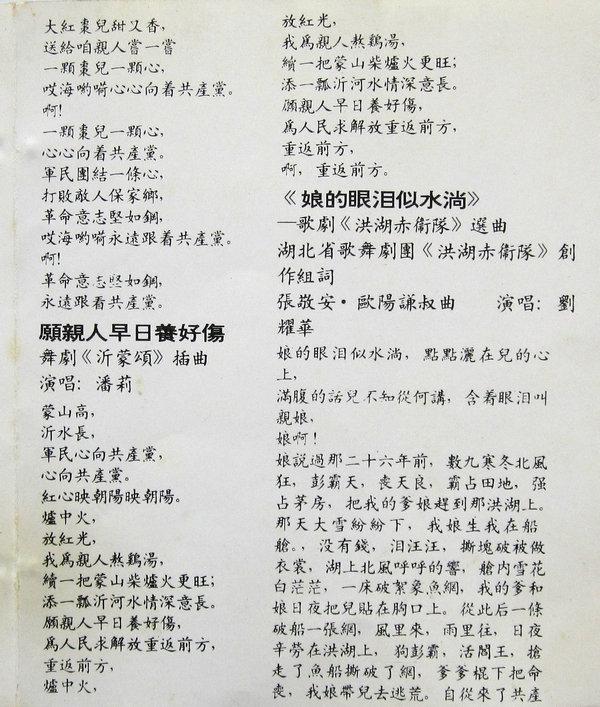 大紅棗兒甜又香，
送給咱親人嘗一嘗
一顆棗兒一顆心，
哎海喲嗬心心向着共產黨。
啊!
一顆棗兒一顆心，
心心向着共產黨。
軍民團結一條心，
打敗敵人保家鄉，
革命意志堅如鋼，
哎海喲嗬永遠跟着共產黨。
啊!
革命意志堅如鋼，
永遠跟着共產黨。
願親人早日養好傷
舞劇《沂蒙頌》插曲
演唱: 潘莉
蒙山高，
沂水長，
軍民心向共產黨，
心向共產黨。
紅心映朝陽映朝陽。
爐中火，
放紅光，
我爲親人熬鷄湯，
續一把蒙山柴爐火更旺;
添一瓢沂河水情深意長。
願親人早日養好傷，
爲人民求解放重返前方，
重返前方，
爐中火，
放紅光，
我爲親人熬鷄湯，
續一把蒙山柴爐火更旺;
添一瓢沂河水情深意長。
願親人早日養好傷，
爲人民求解放重返前方，
重返前方，
啊, 重返前方。
《娘的眼泪似水淌》
—歌劇《洪湖赤衛隊》選曲
湖北省歌舞劇團《洪湖赤衛隊》創
作組詞
張敬安·歐陽謙叔曲 演唱: 劉
耀華
娘的眼泪似水淌, 點點灑在兒的心
上,
滿腹的話兒不知從何講, 含着眼泪叫
親娘,
娘啊!
娘說過那二十六年前, 數九寒冬北風
狂, 彭霸天, 喪天良, 霸占田地, 强
占茅房, 把我的爹娘趕到那洪湖上。
那天大雪紛紛下, 我娘生我在船
艙。, 没有錢, 泪汪汪, 撕塊破被做
衣裳, 湖上北風呼呼的響, 艙内雪花
白茫茫, 一床破絮象魚網, 我的爹和
娘日夜把兒貼在胸口上。從此后一條
破船一張網, 風里來, 雨里往, 日夜
辛勞在洪湖上, 狗彭霸, 活閻王, 搶
走了魚船撕破了網, 爹爹棍下把命
喪, 我娘帶兒去逃荒。自從來了共產